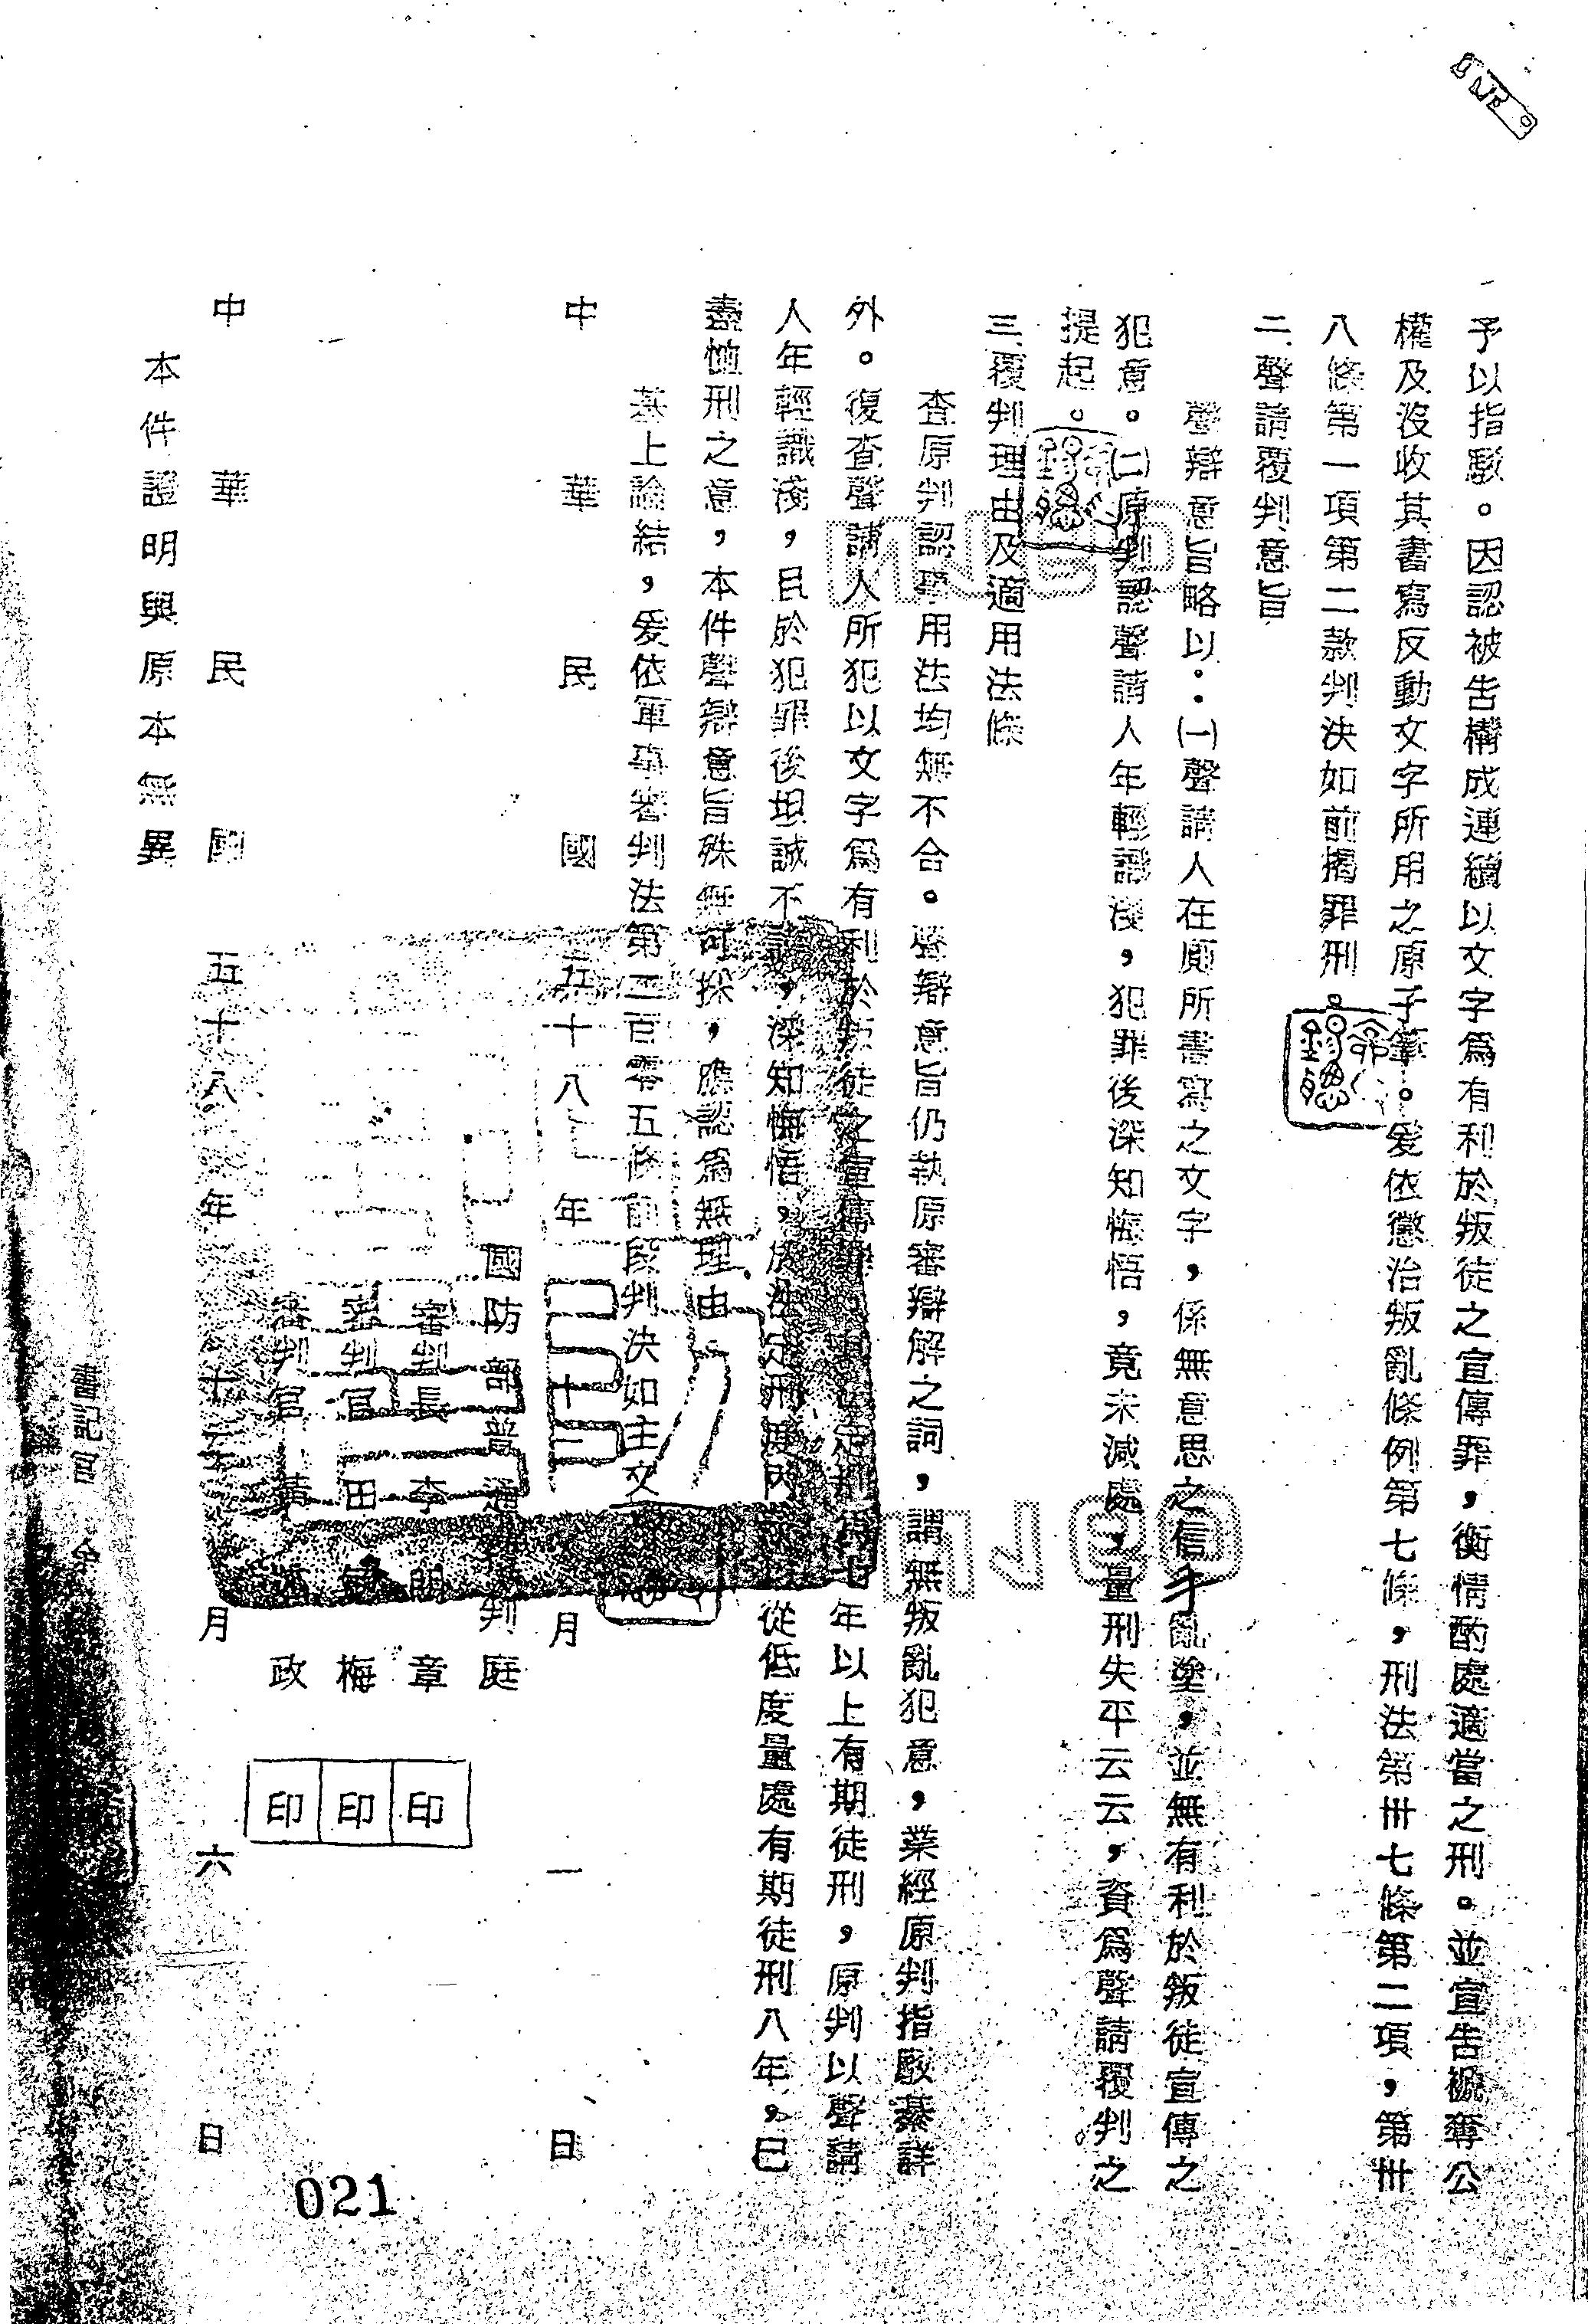 予以指駁。因認被告構成連續以文字爲有利於叛徒之宣傳罪，衡情酌處適當之刑。並宣告褫奪公
權及沒收其書寫反動文字所用之原子筆。爰依懲治叛亂條例第七條，刑法第卅七條第二項，第卅
八條第一項第二款判決如前揭罪刑。
二、聲請覆判意旨
聲辯意旨略以：㈠聲請人在廁所書寫之文字，係無意思之信手亂塗，並無有利於叛徒宣傳之
犯意。㈡原判認聲請人年輕識淺，犯罪後深知悔悟，竟未減處，量刑失平云云，資爲聲請覆判之
提起。
三、覆判理由及適用法條
查原判認事用法均無不合。聲辯意旨仍執原審辯解之詞，謂無叛亂犯意，業經原判指駁綦詳
外。復查聲請人所犯以文字爲有利於叛徒之宣傳罪，其法定刑爲七年以上有期徒刑，原判以聲請
人年輕識淺，且於犯罪後坦誠不諱，深知悔悟，於法定刑度內從低度量處有期徒刑八年，已
盡恤刑之意，本件聲辯意旨殊無可採，應認爲無理由。
基上論結，爰依軍事審判法第二百零五條前段判決如主文
中華民國五十八年十月一日
國防部普通審判庭
審判長李明章 印
審判官田梅 印
審判官黃政 印
中華民國五十八年十月六日
本件證明與原本無異
書記官
021